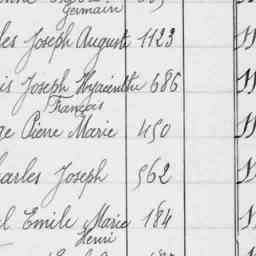 Germain
les Joseph August 1123
is Joseph Hyacinthe 686
François
ge Pierre Marie 450
harles Joseph 562
l Emile Marie 184
Henri